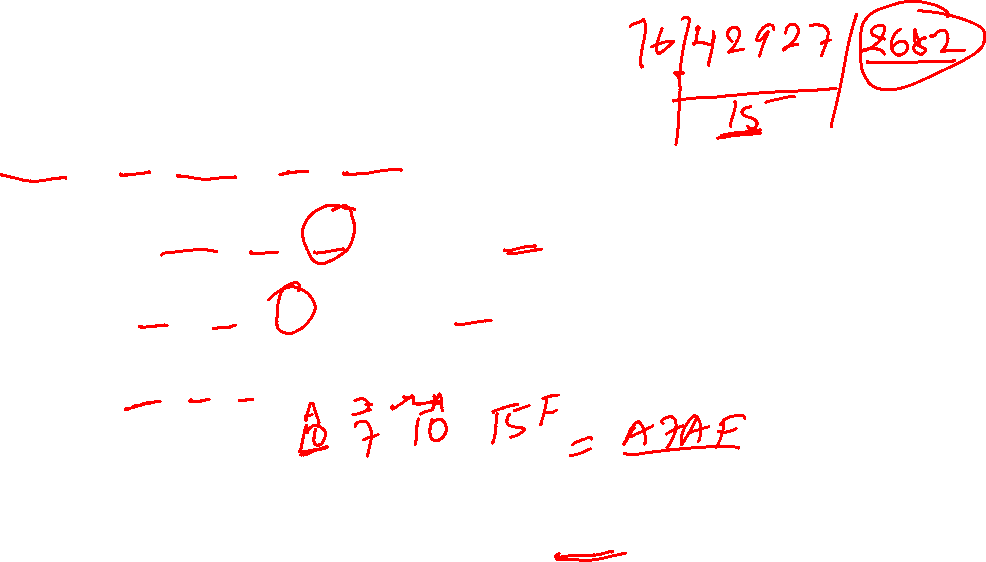 16)42927/2682
15
A 7 A
10 7 10 15 F = A7AF